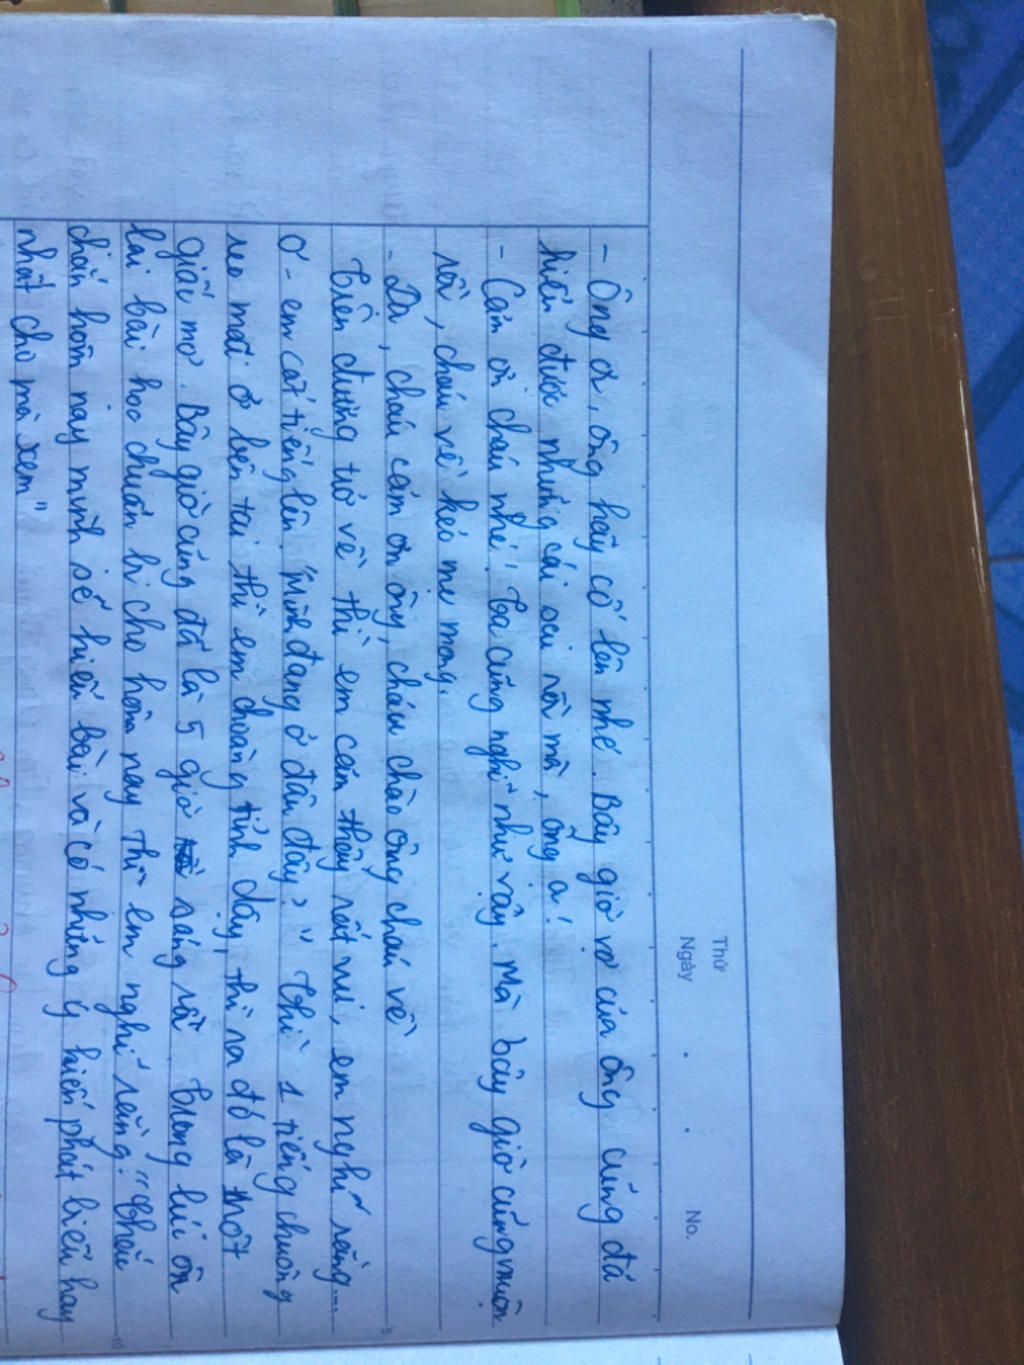 Thứ
Ngày . . No.
- Ông ơi, ông hãy cố lên nhé. Bây giờ vợ của ông cũng đã
hiểu được những cái sai rồi mà, ông ạ!
- Cảm ơn cháu nhé! Ta cũng nghĩ như vậy. Mà bây giờ cũng muộn
rồi, cháu về kẻo mẹ mong.
- Dạ, cháu cảm ơn ông, cháu chào ông cháu về
Trên đường trở về thì em cảm thấy rất vui, em nghĩ rằng...
Ơ - em cất tiếng lên. "Mình đang ở đâu đây?" Thì 1 tiếng chuông
reo mãi ở bên tai thì em choàng tỉnh dậy, thì ra đó là một
giấc mơ. Bây giờ cũng đã là 5 giờ sáng rồi. Trong lúc ôn
lại bài học chuẩn bị cho hôm nay thì em nghĩ rằng: "Chắc
chắn hôm nay mình sẽ hiểu bài và có những ý kiến phát biểu hay
nhất cho mà xem"
5
10